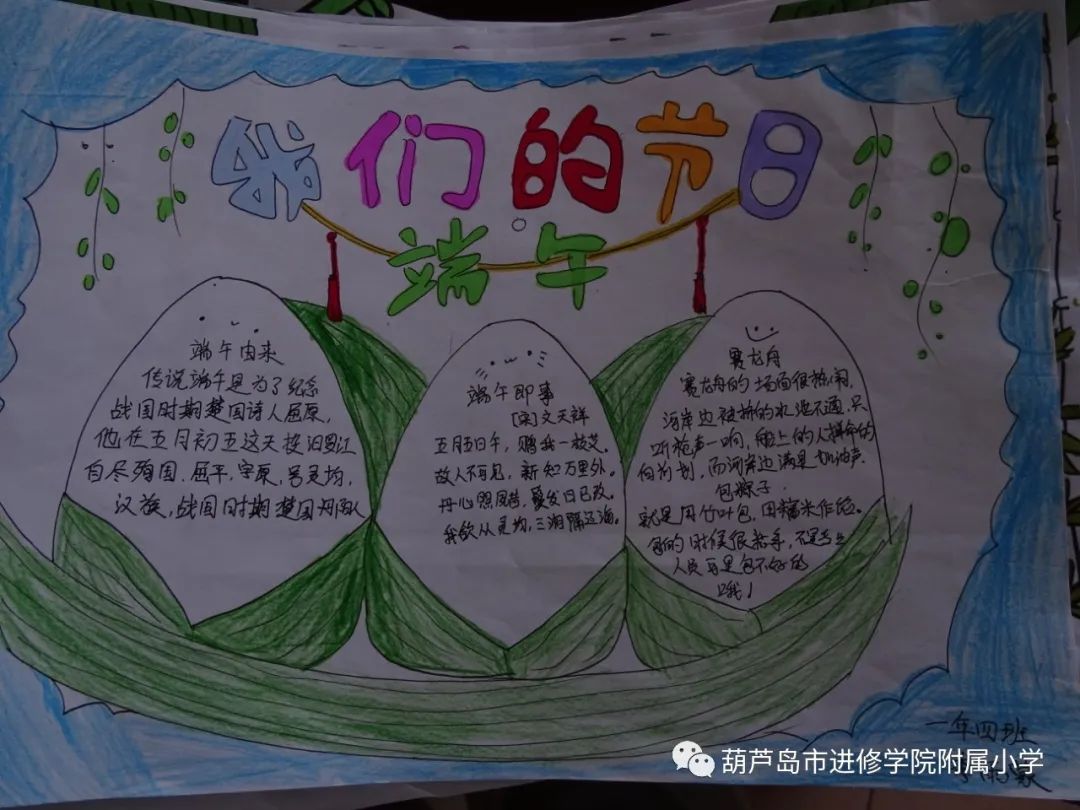 我们的节日
端午
端午由来
传说端午是为了纪念
战国时期楚国诗人屈原，
他在五月初五这天投汨罗江
自尽殉国.屈平,字原,
汉族,战国时期楚国丹
端午即事
[宋]文天祥
五月五日午，赠我一枝艾。
故人不可见，新知万里外。
丹心照夙昔，鬓发日已改。
我欲从灵均，三湘隔辽海。
赛龙舟
赛龙舟的场面很热闹，
河岸边被挤的水泄不通.只
听枪声一响，船上的人拼命的
向前划，而河岸边满是加油声.
包粽子.
就是用竹叶包，用糯米作馅。
包的时候很
人员可是包不好的
哦！
一年四班
葫芦岛市进修学院附属小学